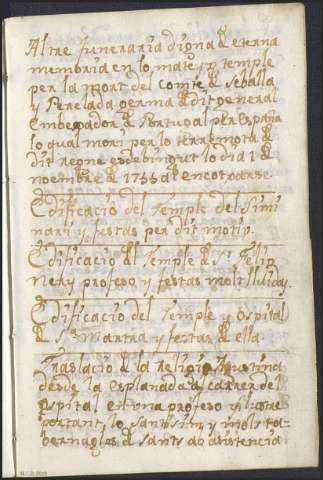 Altre funeraria digna de eterna
memoria en lo mateyx temple
per la mort del Comte de Seballa
y Perelada germa de dit general
Embexador de Portugal per España
lo qual mori per lo terremot de
dit regne esdebingut lo dia 1 de
noembre de 1755 al encotxarse
Edificació del Temple del Simi
nari y festas per dit motiu.
Edificació del Temple de St. Felip
Nery profeso y festas molt lluidas.
Edificacio del Temple y ospital
de Sta Martra y festas de ella.
Traslacio de la religio Agustina
desde la esplanada al carrer del
ospital en una profeso y
portant lo santissim y molts ta-
bernagles de sants ab asistencia